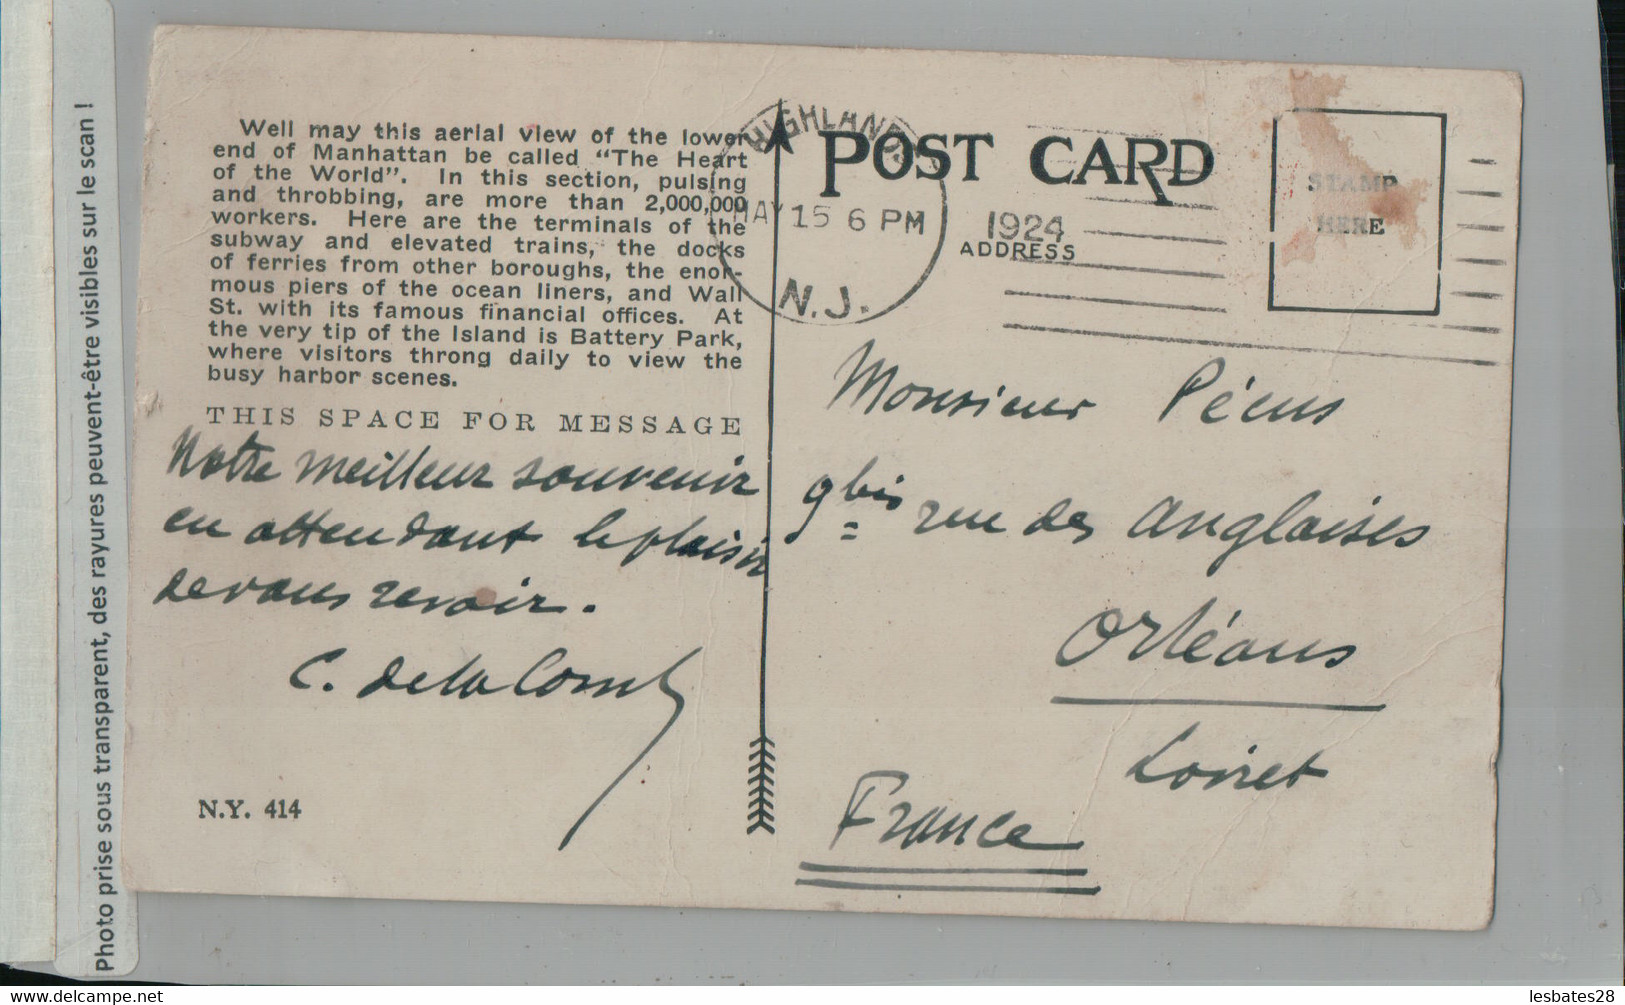 Photo prise sous transparent, des rayures peuvent-être visibles sur le scan !
Well may this aerial view of the lower
end of Manhattan be called “The Heart
of the World”. In this section, pulsing
and throbbing, are more than 2,000,000
workers. Here are the terminals of the
subway and elevated trains, the docks
of ferries from other boroughs, the enor-
mous piers of the ocean liners, and Wall
St. with its famous financial offices. At
the very tip of the Island is Battery Park,
where visitors throng daily to view the
busy harbor scenes.
THIS SPACE FOR MESSAGE
Notre meilleur souvenir
en attendant le plaisir
de vous revoir.
C. de la Comb
N.Y. 414
HIGHLAND
MAY 15 6 PM
1924
N.J.
POST CARD
ADDRESS
STAMP
HERE
Monsieur Pécus
9 bis rue des Anglaises
Orléans
Loiret
France
lesbates28.delcampe.net
lesbates28